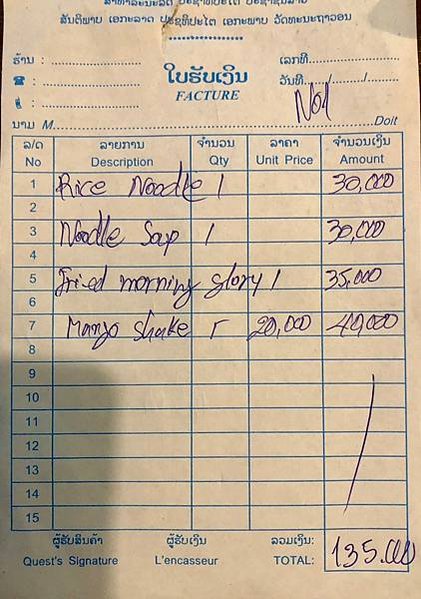 ສາທາລະນະລັດ ປະຊາທິປະໄຕ ປະຊາຊົນລາວ
ສັນຕິພາບ ເອກະລາດ ປະຊາທິປະໄຕ ເອກະພາບ ວັດທະນະຖາວອນ
ຮ້ານ : ເລກທີ
ໃບຮັບເງິນ ວັນທີ ....../....../......
FACTURE
ນາມ M. Doit
ລ/ດ ລາຍການ ຈຳນວນ ລາຄາ ຈຳນວນເງິນ
No Description Qty Unit Price Amount
1 Rice Noodle 1 30,000
2
3 Noodle Soup 1 30,000
4
5 Fried morning glory 1 35,000
6
7 Mango shake 20,000 40,000
8
9
10
11
12
13
14
15
ຜູ້ຮັບສິນຄ້າ ຜູ້ຮັບເງິນ ລວມເງິນ:
Quest's Signature L'encasseur TOTAL: 135.000